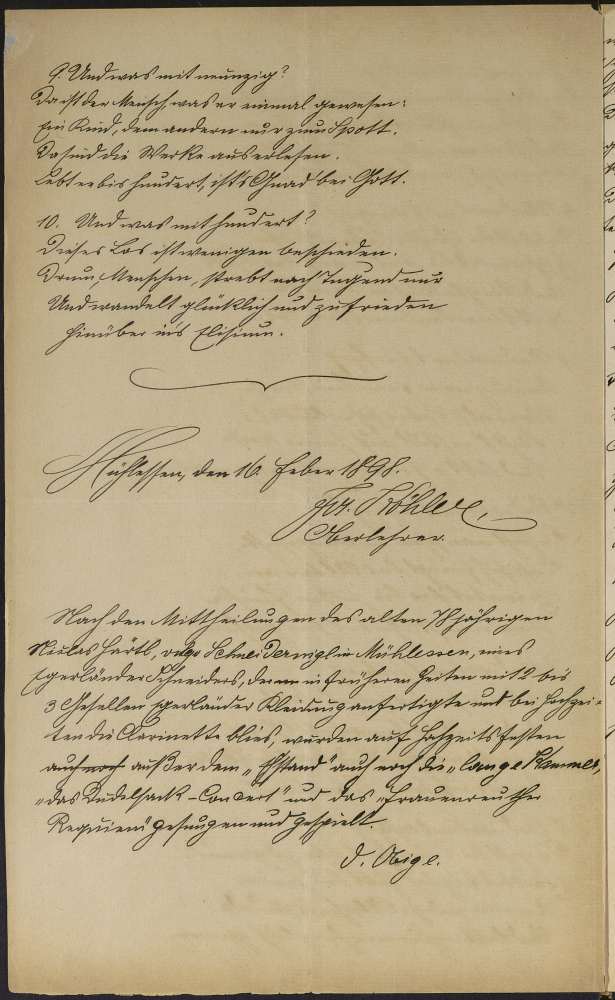 9. Und was mit neunzig?
Da ist der Mensch, was er einmal gewesen:
Ein Kind, dem andern nur zum Spott.
Da sind die Werke auserlesen.
Lebt er bis hundert, ist's Gnad bei Gott.
10. Und was mit hundert?
Dieses Los ist wenigen beschieden.
Drum, Menschen, strebt nach Tugend nur
Und wandelt glücklich und zufrieden
Hinüber in's Elisium.
Mühlessen, den 16. Feber 1898.
Jos. Köhler,
Oberlehrer.
Nach den Mittheilungen des alten 78jährigen
Nicolas Härtl, vulgo Schneidernigl in Mühlessen, eines
Egerländer Schneiders, der in früheren Zeiten mit 2 bis
3 Gesellen Egerländer Kleidung anfertigte und bei Hochzei-
ten die Clarinette blies, wurden auf Hohzeitsfesten
auch noch außer dem „Ehstand" auch noch die „lange Kammer",
„das Dudelsack-Concert" und das „Frauenreuther
Requiem" gesungen und gespielt.
D. Obige.